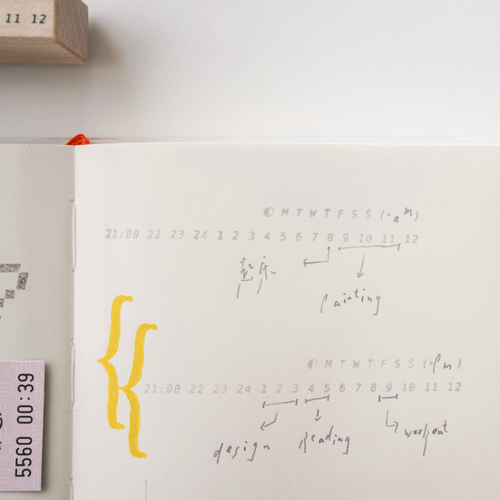 11 12
M T W T F S S (·am)
21:00 22 23 24 1 2 3 4 5 6 7 8 9 10 11 12
起床
painting
M T W T F S S (·pm)
21:00 22 23 24 1 2 3 4 5 6 7 8 9 10 11 12
design
Reading
workout
5560 00:39